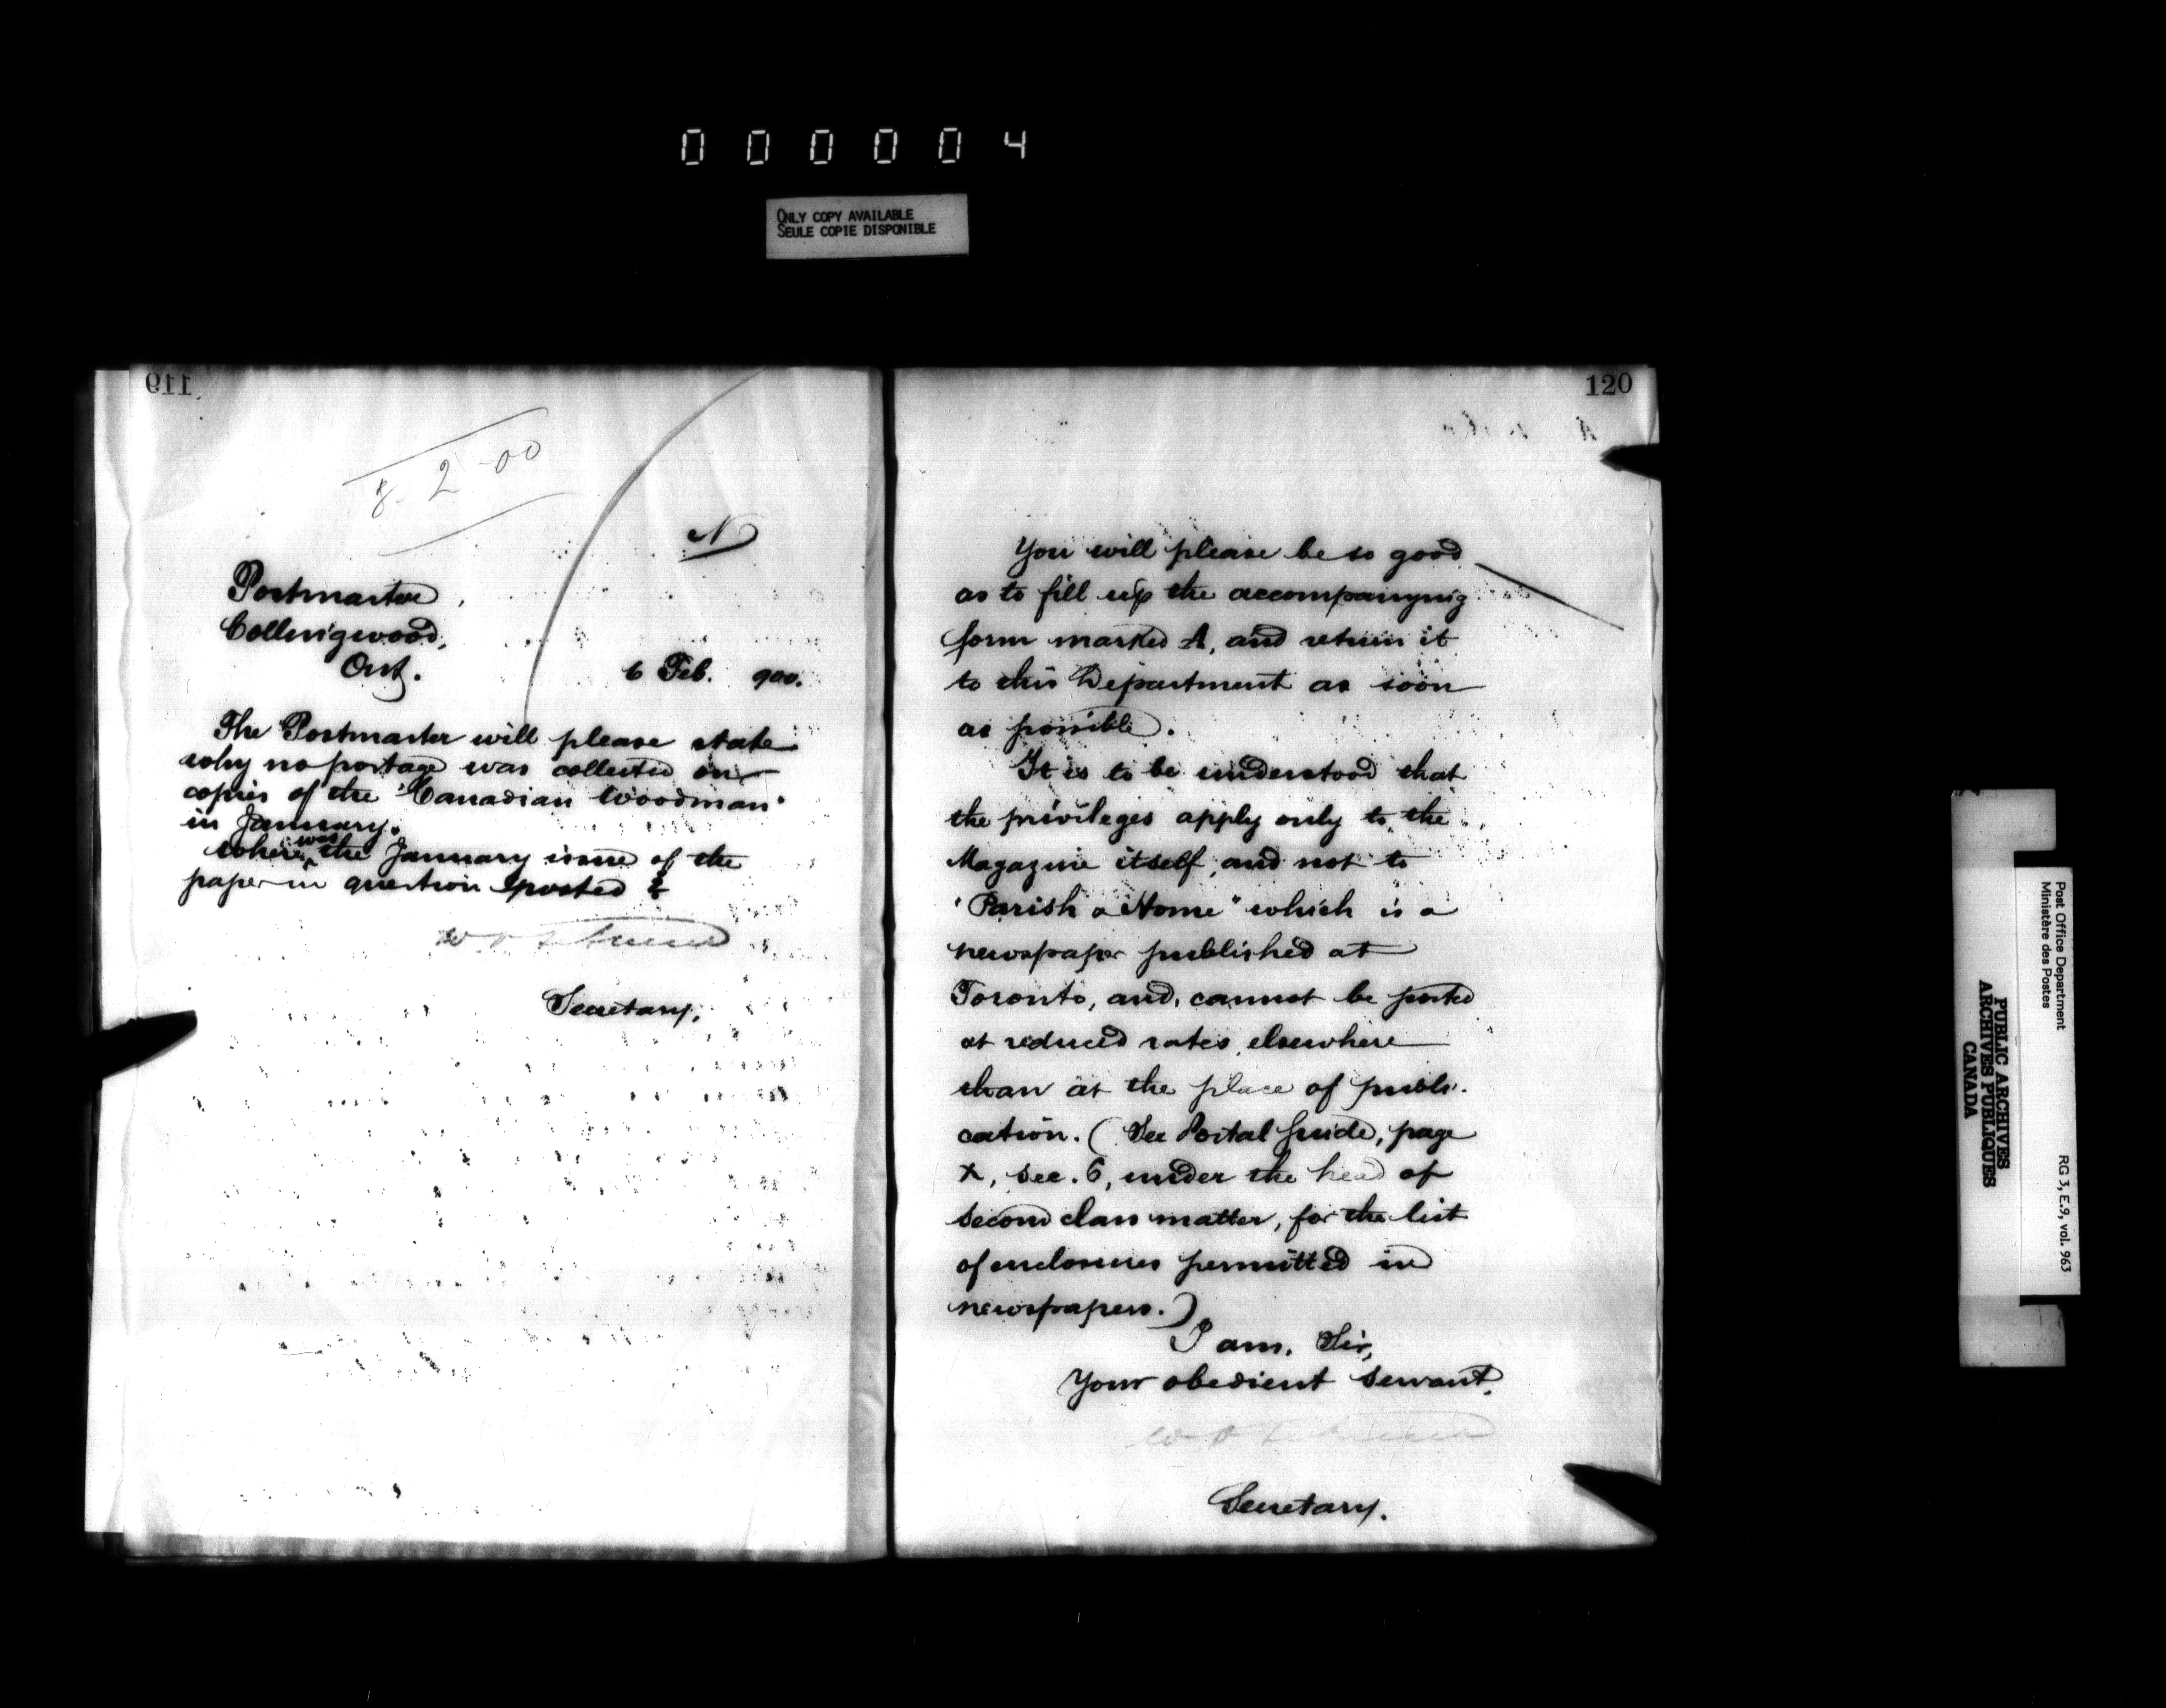 000004
ONLY COPY AVAILABLE
SEULE COPIE DISPONIBLE
119
8-2-00
N
Postmaster,
Collingwood,
Ont.
6 Feb. 900.
The Postmaster will please state
why no postage was collected on
copies of the "Canadian Woodman"
in January.
Where was the January issue of the
paper in question posted?
Secretary.
120
You will please be so good
as to fill up the accompanying
form marked A, and return it
to this Department as soon
as possible.
It is to be understood that
the privileges apply only to the
Magazine itself, and not to
"Parish & Home" which is a
newspaper published at
Toronto, and, cannot be posted
at reduced rates, elsewhere
than at the place of publi-
cation. (See Postal Guide, page
X, sec. 6, under the head of
second class matter, for the list
of enclosures permitted in
newspapers.)
I am, Sir,
Your obedient servant,
Secretary.
Post Office Department
Ministère des Postes
RG 3, E.9, vol. 963
PUBLIC ARCHIVES
ARCHIVES PUBLIQUES
CANADA